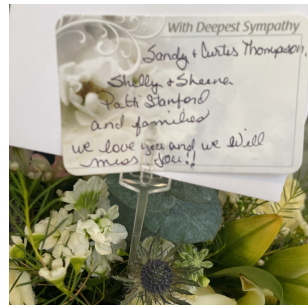 With Deepest Sympathy
Sandy & Curtis Thompson,
Shelly & Sheena
Patti Stanford
and families
we love you and we will
miss you!!